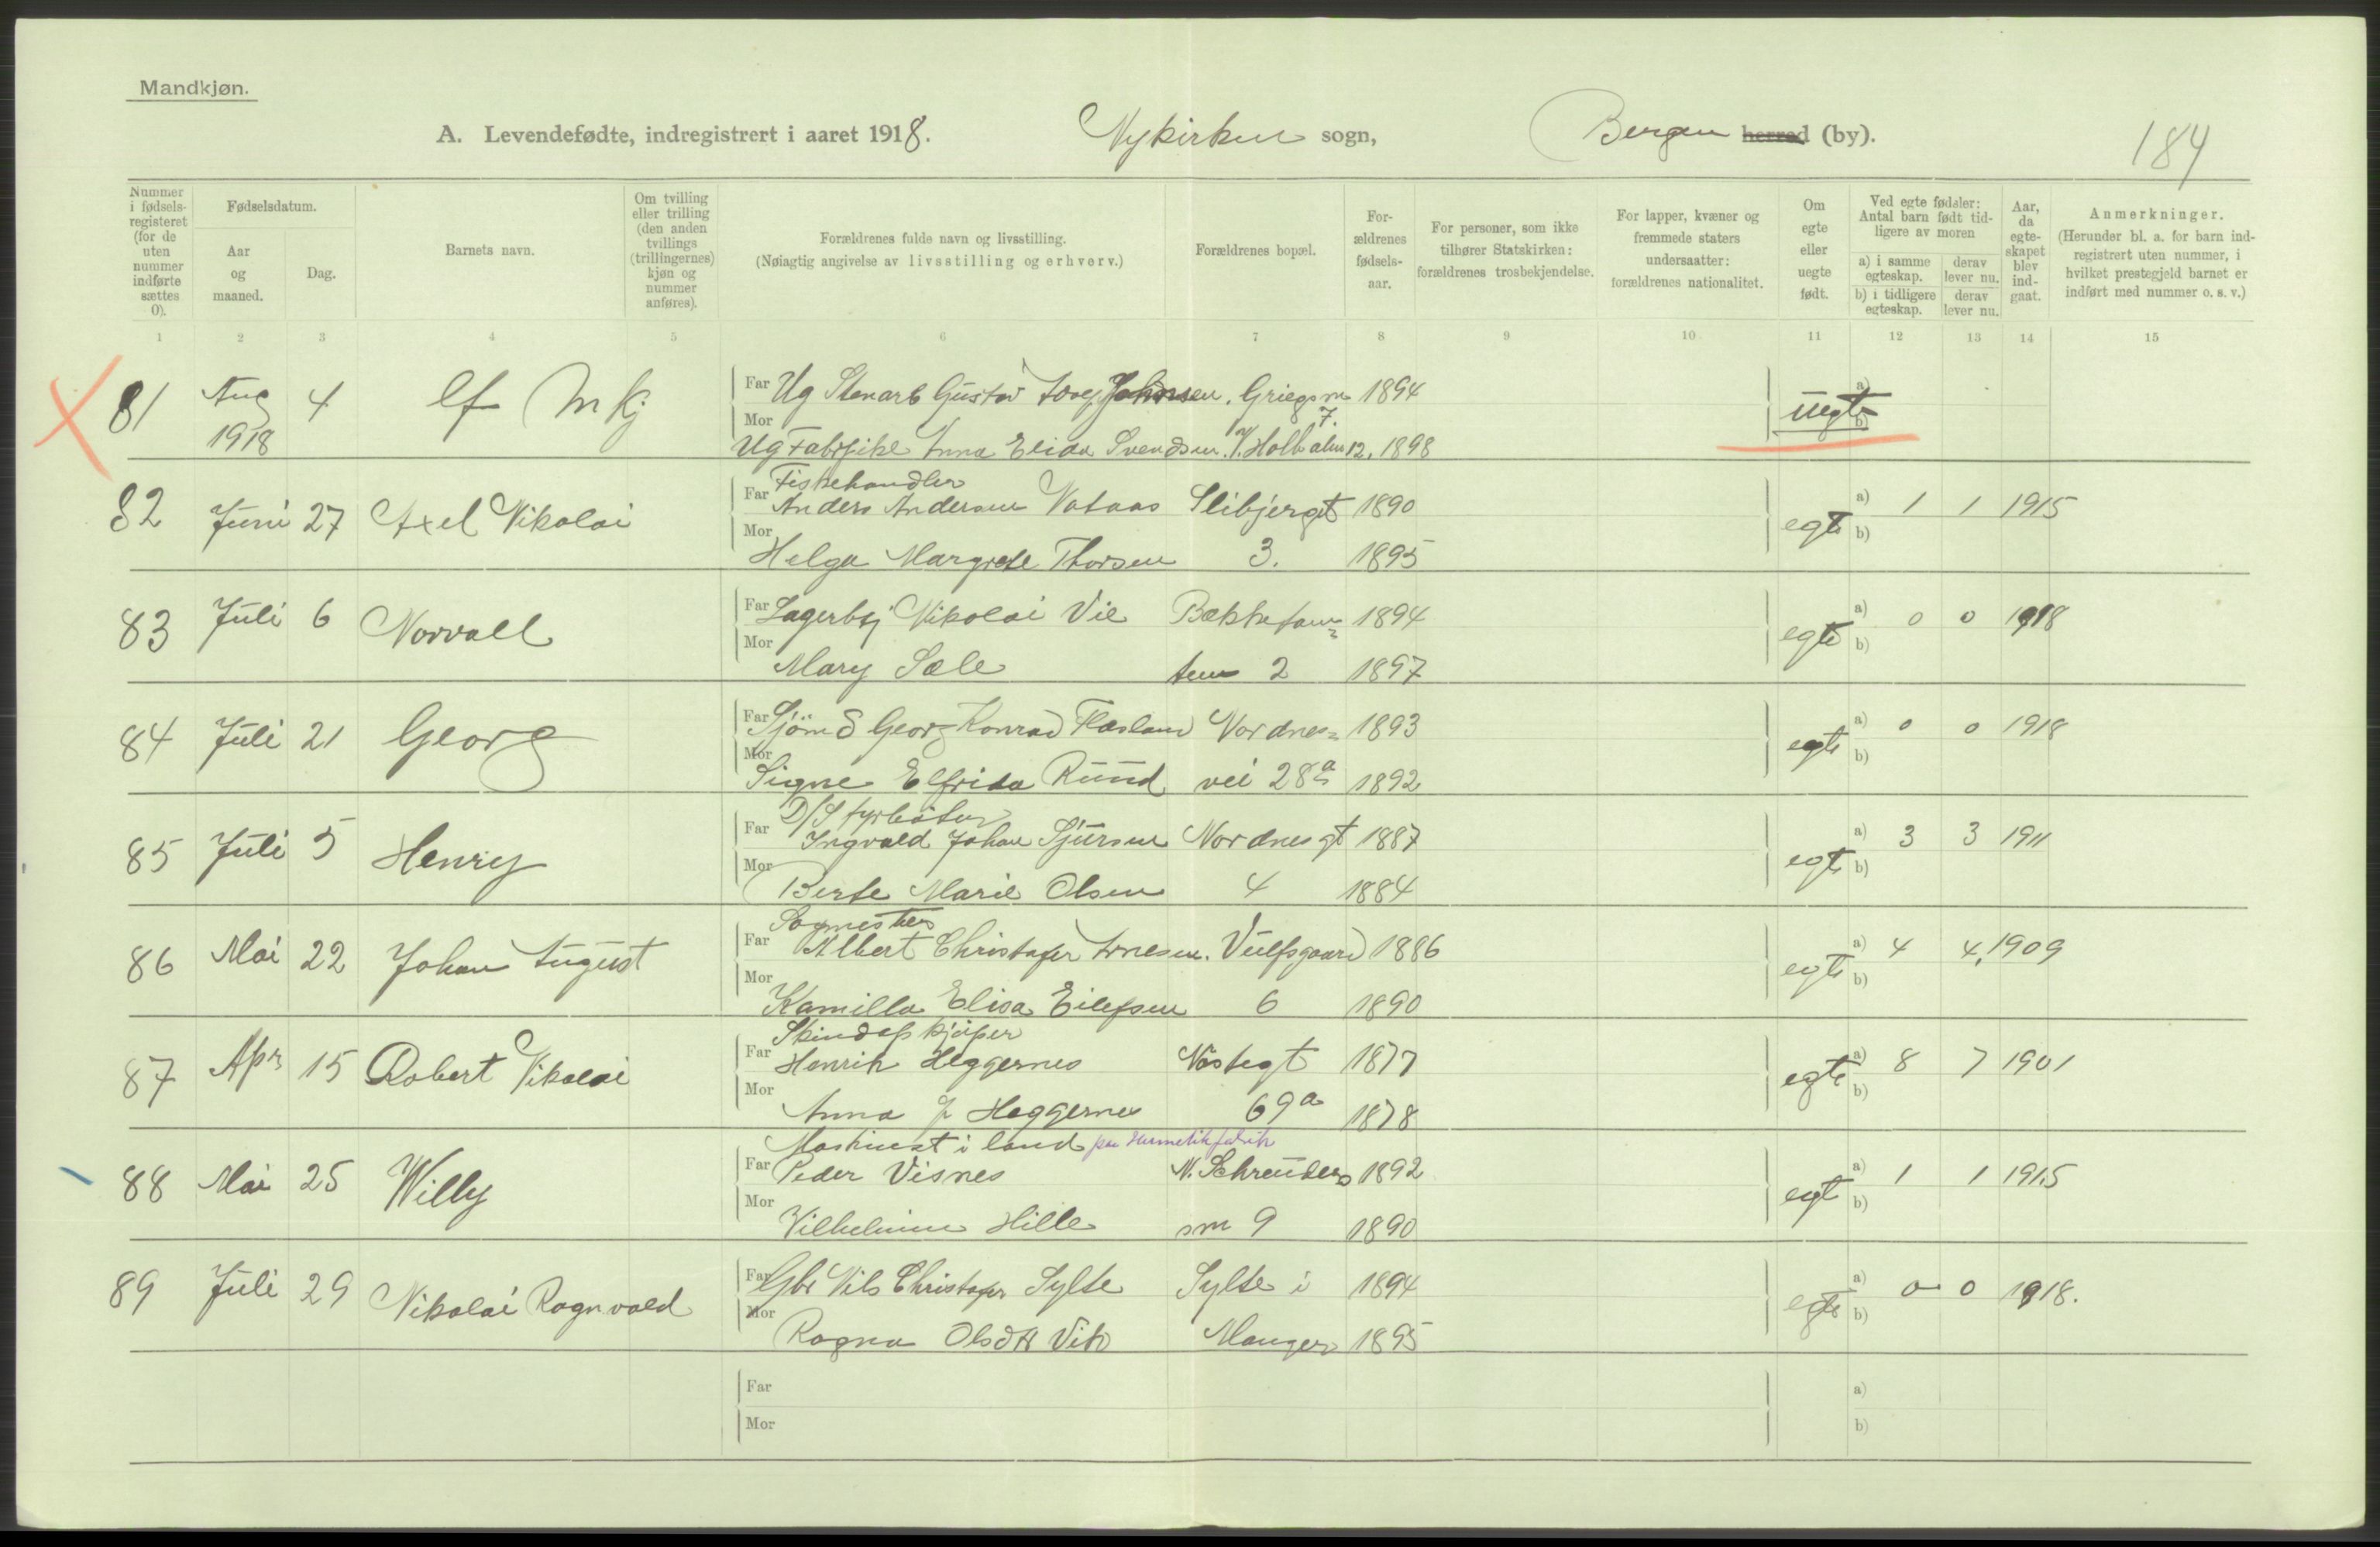 Mandkjøn.
A. Levendefødte, indregistrert i aaret 1918. Nykirken sogn, Bergen herred (by). 184
Nummer i fødsels-registeret (for de uten nummer indførte sættes 0).
Fødselsdatum.
Aar og maaned.
Dag.
Barnets navn.
Om tvilling eller trilling (den anden tvillings (trillingernes) kjøn og nummer anføres).
Forældrenes fulde navn og livsstilling.
(Nøiagtig angivelse av livsstilling og erhverv.)
Forældrenes bopæl.
For-ældrenes fødsels-aar.
For personer, som ikke tilhører Statskirken: forældrenes trosbekjendelse.
For lapper, kvæner og fremmede staters undersaatter: forældrenes nationalitet.
Om egte eller uegte født.
Ved egte fødsler: Antal barn født tid-ligere av moren
a) i samme egteskap. derav lever nu.
b) i tidligere egteskap. derav lever nu.
Aar, da egte-skapet blev ind-gaat.
Anmerkninger.
(Herunder bl. a. for barn ind-registrert uten nummer, i hvilket prestegjeld barnet er indført med nummer o. s. v.)
1 2 3 4 5 6 7 8 9 10 11 12 13 14 15
81 Aug 1918 4 M kj Far Ug Gustav Johnsen. Griegsm 7. 1894 uegte a) b)
Mor Ug Anna Elida Svendsen. 12. 1898
82 Juni 27 Axel Nikolai Fiskehandler
Far Anders Andersen Vataas Slibjergt 1890 egte a) 1 1 1915
Mor Helga Margrete Thorsen 3. 1895 b)
83 Juli 6 Norvall Far Lagerbtj Nikolai Vie 1894 egte a) 0 0 1918
Mor Mary Sæle 2 1897 b)
84 Juli 21 Georg Far Sjömd Georg Konrad Flasland Nordnes= 1893 egte a) 0 0 1918
Mor Signe Elfrida Ruud vei 28a 1892 b)
85 Juli 5 Henry D/S fyrböter
Far Ingvald Johan Sjursen Nordnesgt 1887 egte a) 3 3 1911
Mor Berte Marie Olsen 4 1884 b)
86 Mai 22 Johan August
Far Albert Christofer Arnesen. Vulfsgaard 1886 egte a) 4 4. 1909
Mor Kamilla Elisa Eilefsen 6 1890 b)
87 Apr 15 Robert Nikolai Skindopkjöper
Far Henrik Heggernes Nöstegt 1877 egte a) 8 7 1901
Mor Anna J Heggernes 69a 1878 b)
88 Mai 25 Willy Maskinist i land paa Hermetikfabrik
Far Peder Visnes N. Schreuders 1892 egt a) 1 1 1915
Mor Vilhelmine Hille sm 9 1890 b)
89 Juli 29 Nikolai Ragnvald Far Gbr Nils Christofer Sylte Sylte i 1894 egte a) 0 0 1918.
Mor Ragna Olsdtt Vik Manger 1895 b)
Far a)
Mor b)